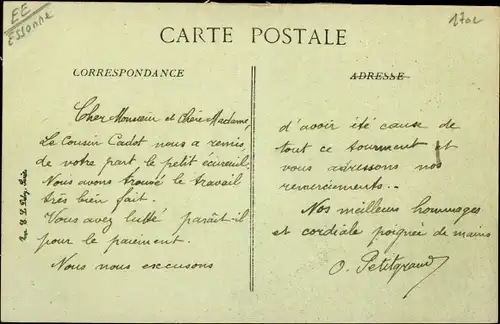 EE
Essonne
1702
CARTE POSTALE
CORRESPONDANCE
Cher Monsieur et Chère Madame,
Le Cousin Cadot nous a remis,
de votre part le petit écureuil.
Nous avons trouvé le travail
très bien fait.
Vous avez lutté paraît-il
pour le paiement.
Nous nous excusons
ADRESSE
d'avoir été cause de
tout ce tourment et
vous adressons nos
remerciements..
Nos meilleurs hommages
et cordiale poignée de mains
O. Petitgrand